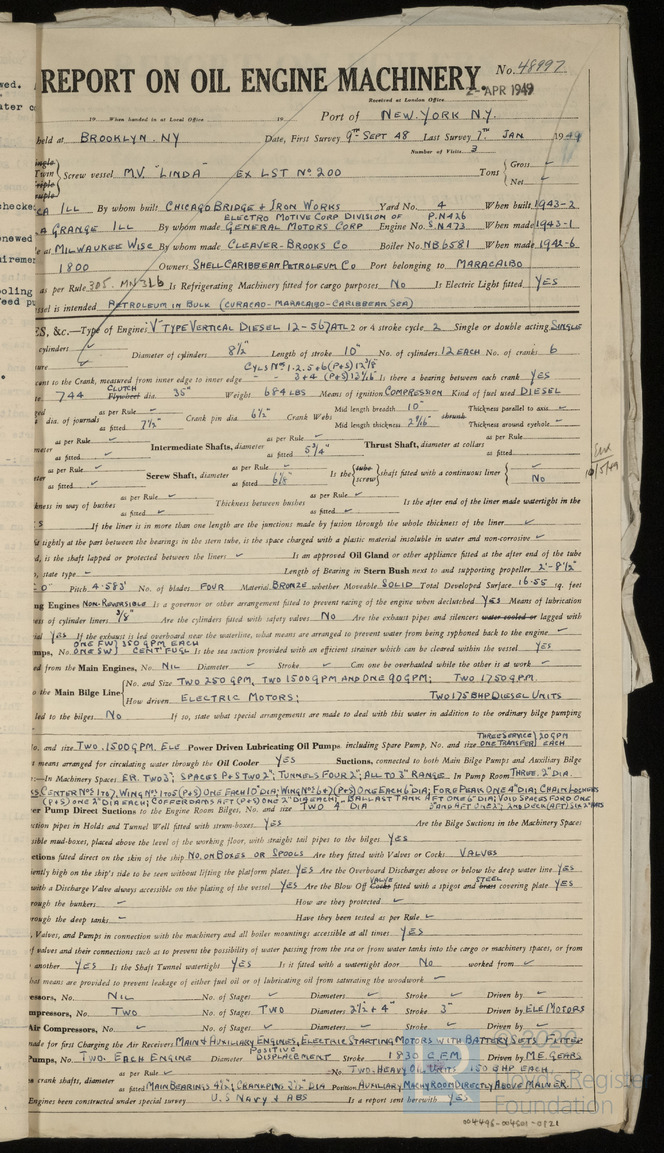 REPORT ON OIL ENGINE MACHINERY. No. 48997
2 - APR 1949
Received at London Office
19 When handed in at Local Office 19 Port of NEW YORK N.Y.
held at BROOKLYN. NY Date, First Survey 9TH SEPT 48 Last Survey 7TH JAN 1949
Number of Visits 3
Single
Twin
Triple
Screw vessel M.V. "LINDA" EX LST No 200 Tons Gross
Net
ILL By whom built CHICAGO BRIDGE & IRON WORKS Yard No. 4 When built 1943-2
ELECTRO MOTIVE CORP DIVISION OF P.N426
A GRANGE ILL By whom made GENERAL MOTORS CORP Engine No. S.N473 When made 1943-1
at MILWAUKEE WISC By whom made CLEAVER-BROOKS CO Boiler No. NB6581 When made 1942-6
1800 Owners SHELL CARIBBEAN PETROLEUM CO Port belonging to MARACAIBO
as per Rule 305. Is Refrigerating Machinery fitted for cargo purposes NO Is Electric Light fitted YES
vessel is intended PETROLEUM IN BULK (CURACAO-MARACAIBO-CARIBBEAN SEA)
ES, &c.—Type of Engine V TYPE VERTICAL DIESEL 12-567ATL 2 or 4 stroke cycle 2 Single or double acting SINGLE
cylinders Diameter of cylinders 8½" Length of stroke 10" No. of cylinders 12 EACH No. of cranks 6
CYLS Nos 1-2-5+6 (P+S) 12⅜
cent to the Crank, measured from inner edge to inner edge 3+4 (P+S) Is there a bearing between each crank YES
744 CLUTCH Flywheel dia. 35" Weight 684 LBS Means of ignition COMPRESSION Kind of fuel used DIESEL
dia. of journals as per Rule as fitted 7½" Crank pin dia. 6½" Crank Webs Mid length breadth 10" Mid length thickness 2 9/16" shrunk Thickness parallel to axis Thickness around eyehole
as per Rule as fitted Intermediate Shafts, diameter as per Rule as fitted 5¾" Thrust Shaft, diameter at collars as per Rule as fitted
as per Rule as fitted Screw Shaft, diameter as per Rule as fitted 6⅛" Is the tube screw shaft fitted with a continuous liner No
kness in way of bushes as per Rule as fitted Thickness between bushes as per Rule as fitted Is the after end of the liner made watertight in the
If the liner is in more than one length are the junctions made by fusion through the whole thickness of the liner
fit tightly at the part between the bearings in the stern tube, is the space charged with a plastic material insoluble in water and non-corrosive
d, is the shaft lapped or protected between the liners Is an approved Oil Gland or other appliance fitted at the after end of the tube
, state type Length of Bearing in Stern Bush next to and supporting propeller 2'-8½"
0" Pitch 4.583' No. of blades FOUR Material BRONZE whether Moveable SOLID Total Developed Surface 16.55 sq. feet
ng Engines NON-REVERSIBLE Is a governor or other arrangement fitted to prevent racing of the engine when declutched YES Means of lubrication
ess of cylinder liners ⅜" Are the cylinders fitted with safety valves NO Are the exhaust pipes and silencers water cooled or lagged with
ial YES If the exhaust is led overboard near the waterline, what means are arranged to prevent water from being syphoned back to the engine
ONE FW} 350 GPM EACH
mps, No. ONE SW} CENT'FUGL Is the sea suction provided with an efficient strainer which can be cleared within the vessel YES
ed from the Main Engines, No. NIL Diameter Stroke Can one be overhauled while the other is at work
o the Main Bilge Line No. and Size TWO 250 GPM, TWO 1500 GPM AND ONE 90 GPM; TWO 1750 GPM.
How driven ELECTRIC MOTORS; TWO 175 BHP DIESEL UNITS
led to the bilges NO If so, state what special arrangements are made to deal with this water in addition to the ordinary bilge pumping
THREE SERVICE} 20 GPM
o. and size TWO. 1500 GPM. ELE Power Driven Lubricating Oil Pumps, including Spare Pump, No. and size ONE TRANSFER} EACH
means arranged for circulating water through the Oil Cooler YES Suctions, connected to both Main Bilge Pumps and Auxiliary Bilge
:—In Machinery Spaces ER. TWO 3"; SPACES P+S TWO 2"; TUNNELS FOUR 2"; ALL TO 3" RANGE. In Pump Room THREE. 2" DIA.
CENTER Nos 1 TO 7, WING Nos 1 TO 5 (P+S) ONE EACH 10" DIA; WING No 6+7 (P+S) ONE EACH 6" DIA; FORE PEAK ONE 4" DIA; CHAIN LOCKERS
(P+S) ONE 2" DIA EACH; COFFERDAMS AFT (P+S) ONE 2" DIA EACH; BALLAST TANK AFT ONE 6" DIA; VOID SPACES FORD ONE
er Pump Direct Suctions to the Engine Room Bilges, No. and size TWO 4" DIA
ction pipes in Holds and Tunnel Well fitted with strum-boxes YES Are the Bilge Suctions in the Machinery Spaces
sible mud-boxes, placed above the level of the working floor, with straight tail pipes to the bilges YES
ections fitted direct on the skin of the ship NO. ON BOXES OR SPOOLS Are they fitted with Valves or Cocks VALVES
iently high on the ship's side to be seen without lifting the platform plates YES Are the Overboard Discharges above or below the deep water line YES
VALVE STEEL
with a Discharge Valve always accessible on the plating of the vessel YES Are the Blow Off Cocks fitted with a spigot and brass covering plate YES
rough the bunkers How are they protected
rough the deep tanks Have they been tested as per Rule
, Valves, and Pumps in connection with the machinery and all boiler mountings accessible at all times YES
f valves and their connections such as to prevent the possibility of water passing from the sea or from water tanks into the cargo or machinery spaces, or from
another YES Is the Shaft Tunnel watertight YES Is it fitted with a watertight door NO worked from
hat means are provided to prevent leakage of either fuel oil or of lubricating oil from saturating the woodwork
ressors, No. NIL No. of Stages Diameters Stroke Driven by
mpressors, No. TWO No. of Stages TWO Diameters 2½ + 4" Stroke 3" Driven by ELE MOTORS
Air Compressors, No. No. of Stages Diameters Stroke Driven by
made for first Charging the Air Receivers MAIN & AUXILIARY ENGINES, ELECTRIC STARTING MOTORS WITH BATTERY SETS FITTED
Pumps, No. TWO. EACH ENGINE Diameter POSITIVE DISPLACEMENT Stroke 1830 C.F.M. Driven by M.E. GEARS
as per Rule No. TWO-HEAVY OIL UNITS 150 BHP EACH
s crank shafts, diameter as fitted MAIN BEARINGS 4½"; CRANKPINS 3½" DIA Position AUXILIARY MACHY ROOM DIRECTLY ABOVE MAIN E.R.
Engines been constructed under special survey U.S NAVY & ABS Is a report sent herewith YES
© 2020
Lloyd's Register
Foundation
004496-004501-0121